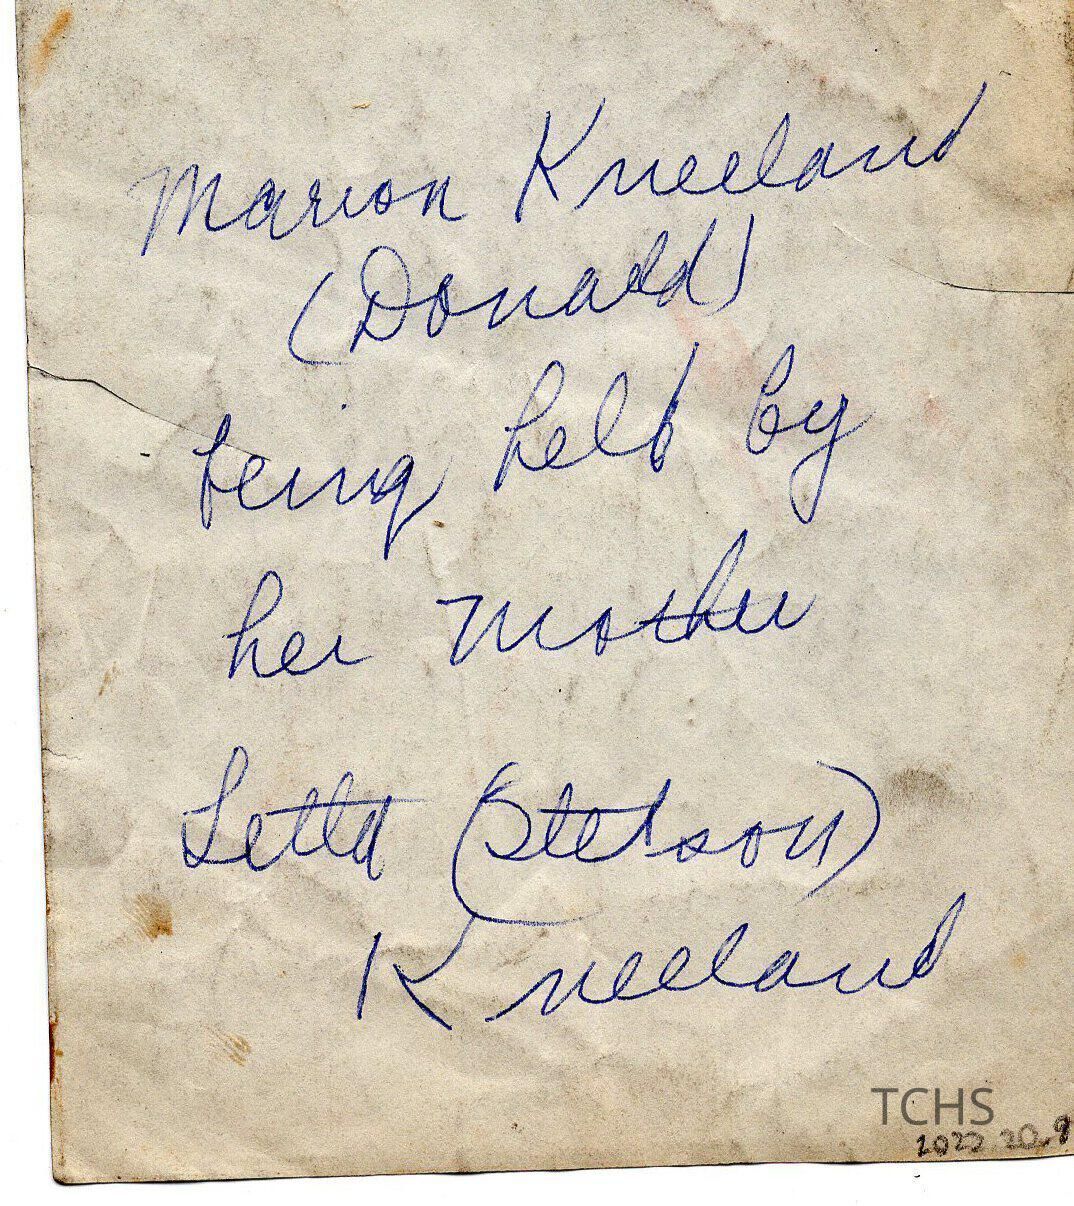 Marion Kneeland
(Donald)
being held by
her Mother
Letta (Stetson)
Kneeland
TCHS
2022.20.9